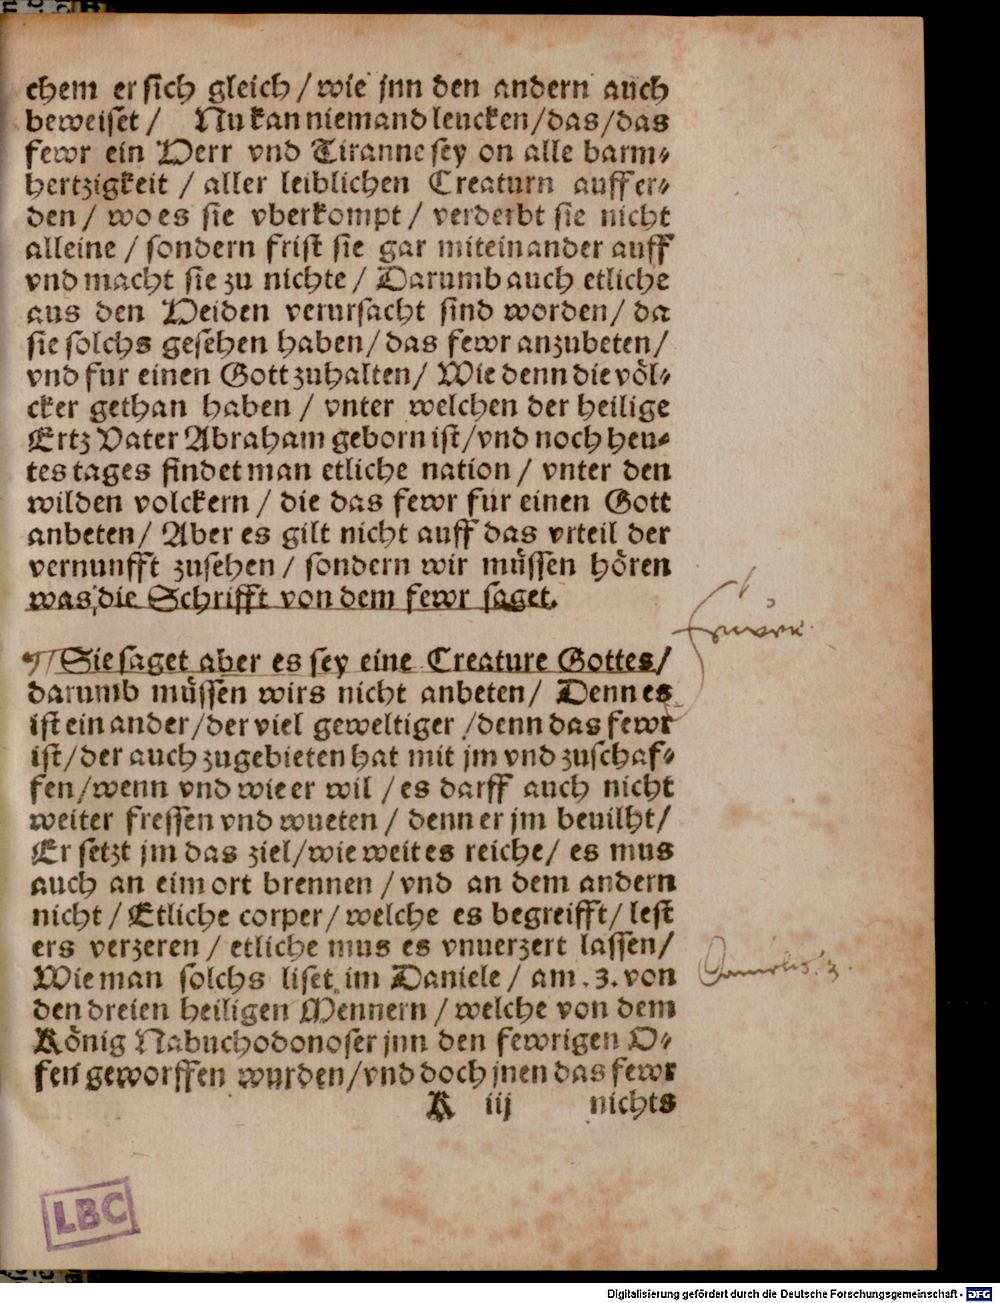 chem er sich gleich / wie jnn den andern auch
beweiset / Nu kan niemand leucken / das / das
fewr ein Herr vnd Tiranne sey on alle barm⸗
hertzigkeit / aller leiblichen Creaturn auff er⸗
den / wo es sie vberkompt / verderbt sie nicht
alleine / sondern frist sie gar miteinander auff
vnd macht sie zu nichte / Darumb auch etliche
aus den Heiden verursacht sind worden / da
sie solchs gesehen haben / das fewr anzubeten /
vnd fur einen Gott zuhalten / Wie denn die völ⸗
cker gethan haben / vnter welchen der heilige
Ertz Vater Abraham geborn ist / vnd noch heu⸗
tes tages findet man etliche nation / vnter den
wilden volckern / die das fewr fur einen Gott
anbeten / Aber es gilt nicht auff das vrteil der
vernunfft zusehen / sondern wir müssen hören
was die Schrifft von dem fewr saget.
Sie saget aber es sey eine Creature Gottes /
darumb müssen wirs nicht anbeten / Denn es
ist ein ander / der viel geweltiger / denn das fewr
ist / der auch zugebieten hat mit jm vnd zuschaf⸗
fen / wenn vnd wie er wil / es darff auch nicht
weiter fressen vnd wueten / denn er jm beuilht /
Er setzt jm das ziel / wie weit es reiche / es mus
auch an eim ort brennen / vnd an dem andern
nicht / Etliche corper / welche es begreifft / lest
ers verzeren / etliche mus es vnuerzert lassen /
Wie man solchs liset im Daniele / am .3. von
den dreien heiligen Mennern / welche von dem
König Nabuchodonoser jnn den fewrigen O⸗
fen geworffen wurden / vnd doch jnen das fewr
K iij nichts
LBC
Digitalisierung gefördert durch die Deutsche Forschungsgemeinschaft - DFG